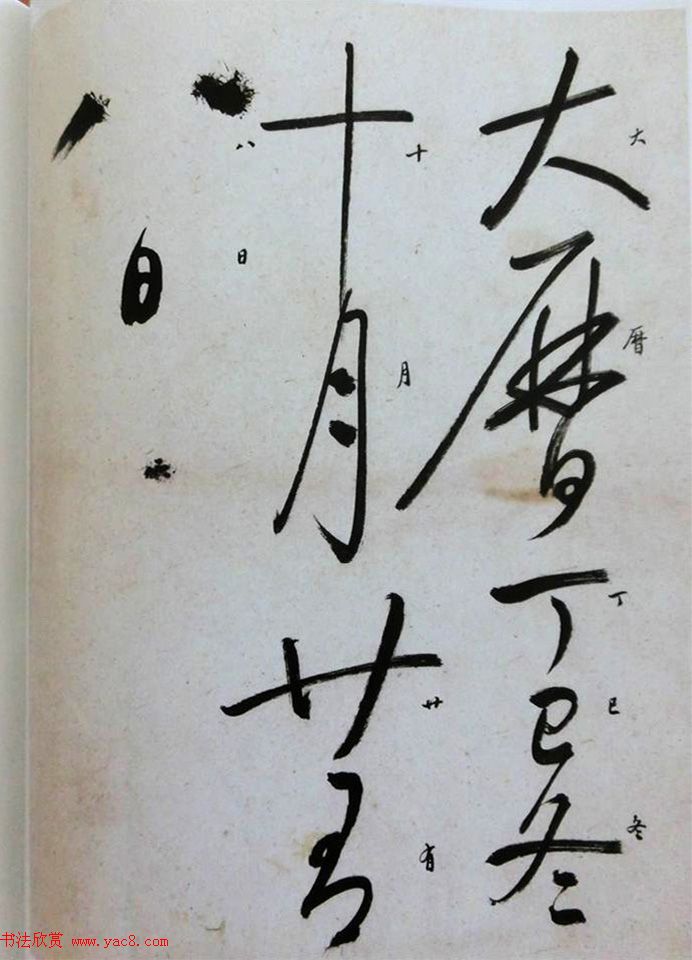 大暦丁巳冬
大暦丁巳冬
十月廿有
十月廿有
八日
八日
书法欣赏 www.yac8.com